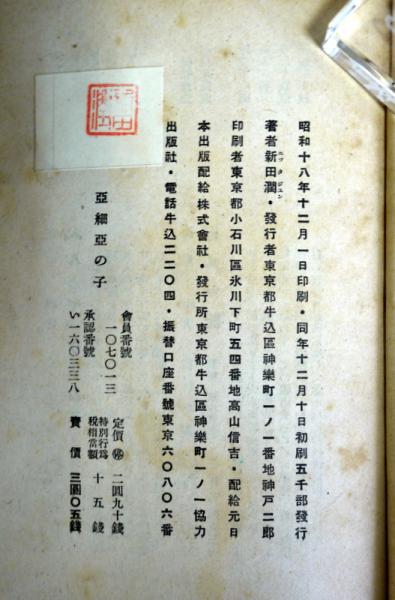 昭和十八年十二月一日印刷・同年十二月十日初刷五千部發行
著者新田潤・發行者東京都牛込區神樂町一ノ一番地神戸二郎
ニッタジュン
印刷者東京都小石川區氷川下町五四番地高山信吉・配給元日
本出版配給株式會社・發行所東京都牛込區神樂町一ノ一協力
出版社・電話牛込二二〇四・振替口座番號東京六〇八〇六番
亞細亞の子
會員番號
一〇七〇一三
承認番號
い一六〇三三八
定價 ㊕ 二圓九十錢
特別行爲税相當額 十五錢
賣價 三圓〇五錢